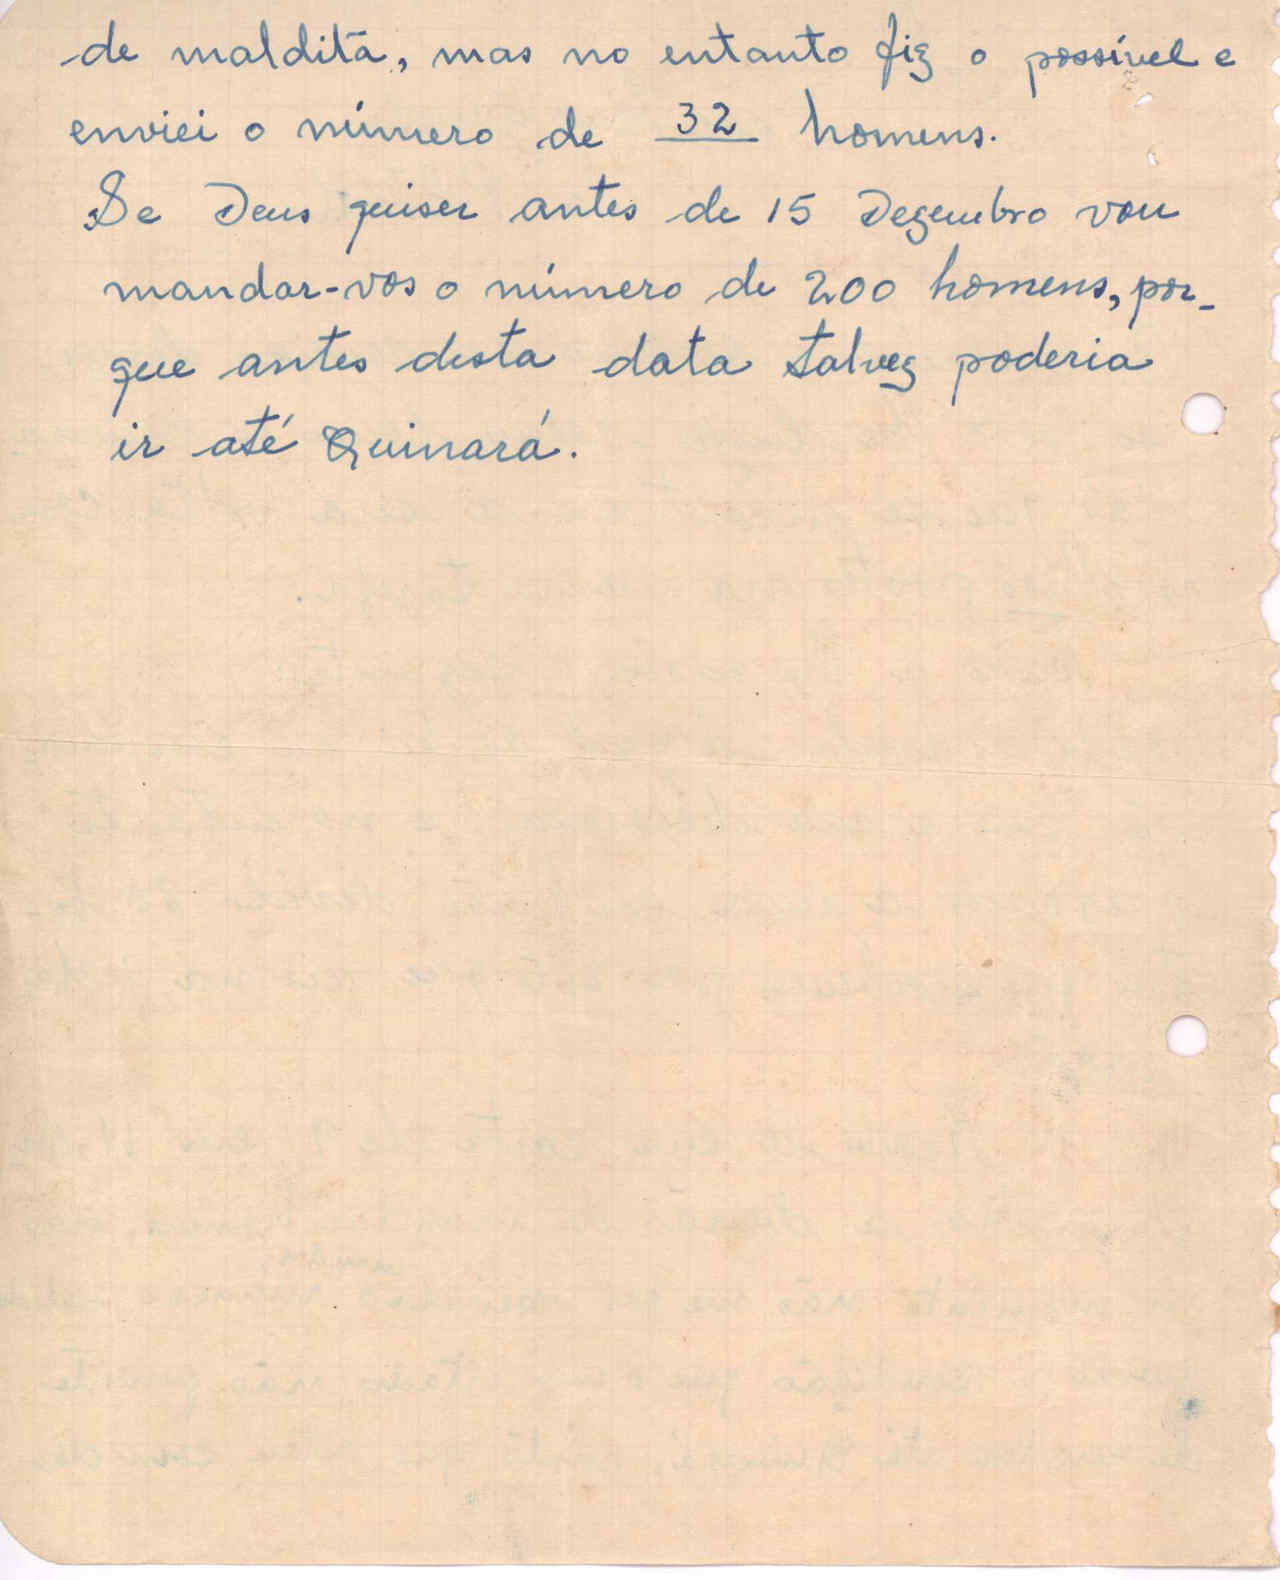 de maldita, mas no entanto fiz o possível e
enviei o número de 32 homens.
Se Deus quiser antes de 15 Dezembro vou
mandar-vos o número de 200 homens, por-
que antes desta data talvez poderia
ir até Quinará.